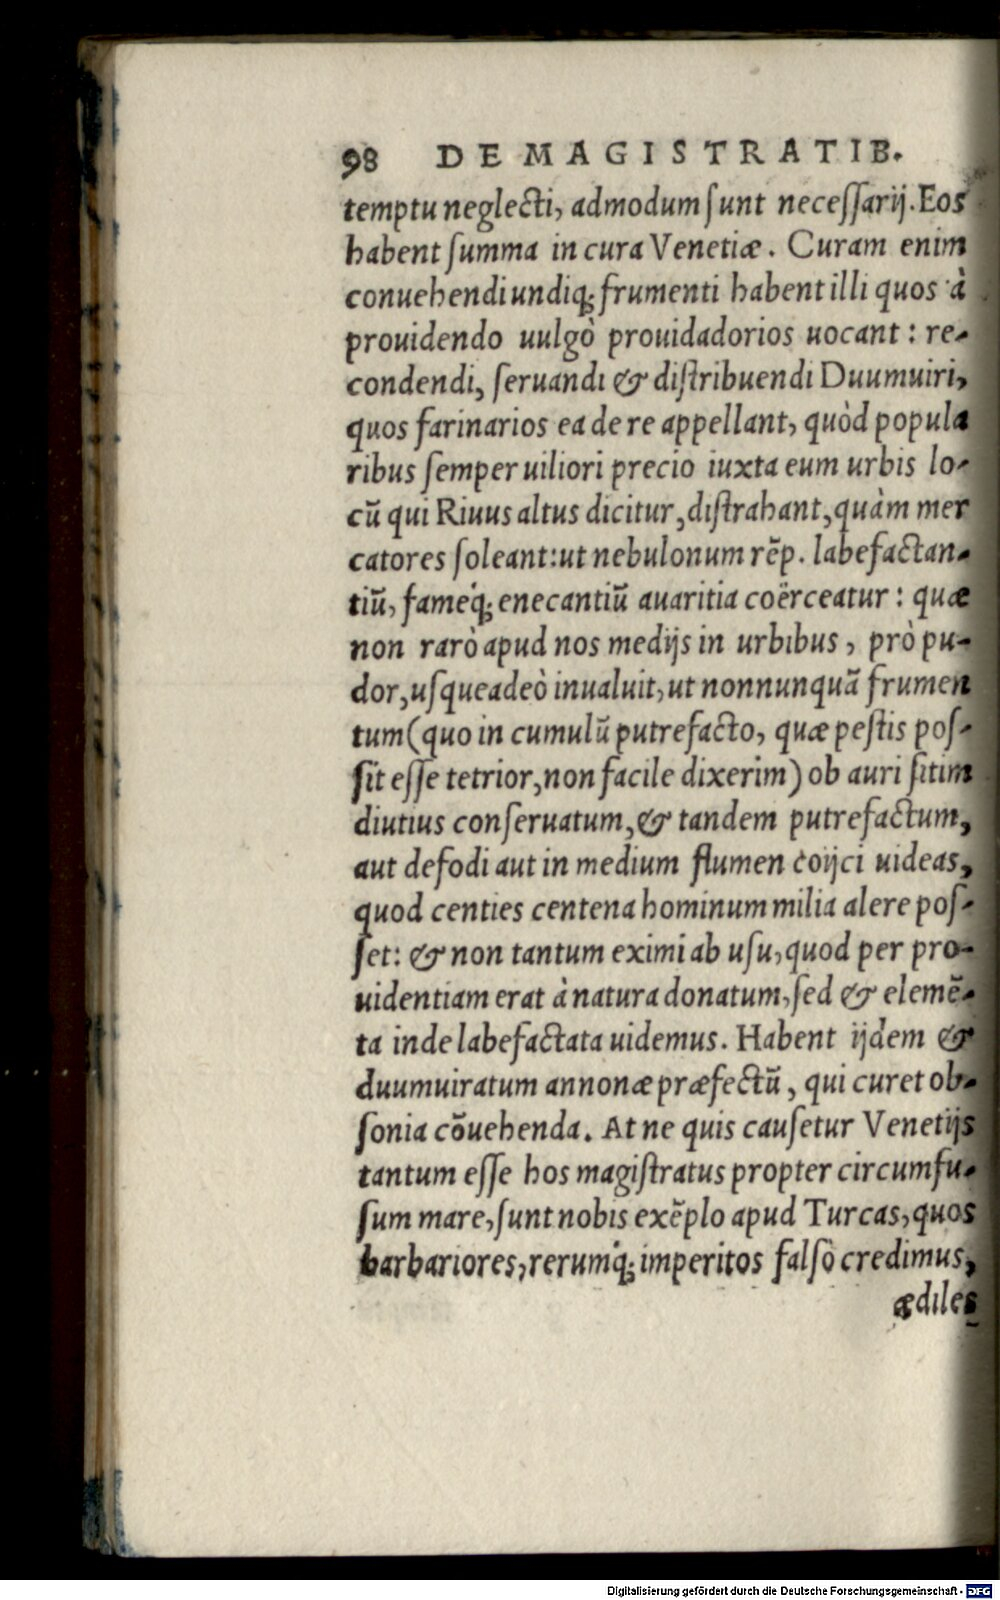 98 DE MAGISTRATIB.
temptu neglecti, admodum ſunt neceſſarij. Eos
habent ſumma in cura Venetiæ. Curam enim
conuehendi undiq; frumenti habent illi quos à
prouidendo uulgò prouidadorios uocant: re-
condendi, ſeruandi & diſtribuendi Duumuiri,
quos farinarios ea de re appellant, quòd popula
ribus ſemper uiliori precio iuxta eum urbis lo-
cū qui Riuus altus dicitur, diſtrahant, quàm mer
catores ſoleant: ut nebulonum rēp. labefactan-
tiū, fameq́; enecantiū auaritia coërceatur: quæ
non rarò apud nos medijs in urbibus, prò pu-
dor, uſqueadeò inualuit, ut nonnunquā frumen
tum (quo in cumulū putrefacto, quæ peſtis poſ-
ſit eſſe tetrior, non facile dixerim) ob auri ſitim
diutius conſeruatum, & tandem putrefactum,
aut defodi aut in medium flumen cōijci uideas,
quod centies centena hominum milia alere poſ-
ſet: & non tantum eximi ab uſu, quod per pro-
uidentiam erat à natura donatum, ſed & elemē-
ta inde labefactata uidemus. Habent ijdem &
duumuiratum annonæ præfectū, qui curet ob-
ſonia cōuehenda. At ne quis cauſetur Venetijs
tantum eſſe hos magiſtratus propter circumfu-
ſum mare, ſunt nobis exēplo apud Turcas, quos
barbariores, rerumq́; imperitos falſò credimus,
ædiles
Digitalisierung gefördert durch die Deutsche Forschungsgemeinschaft - DFG